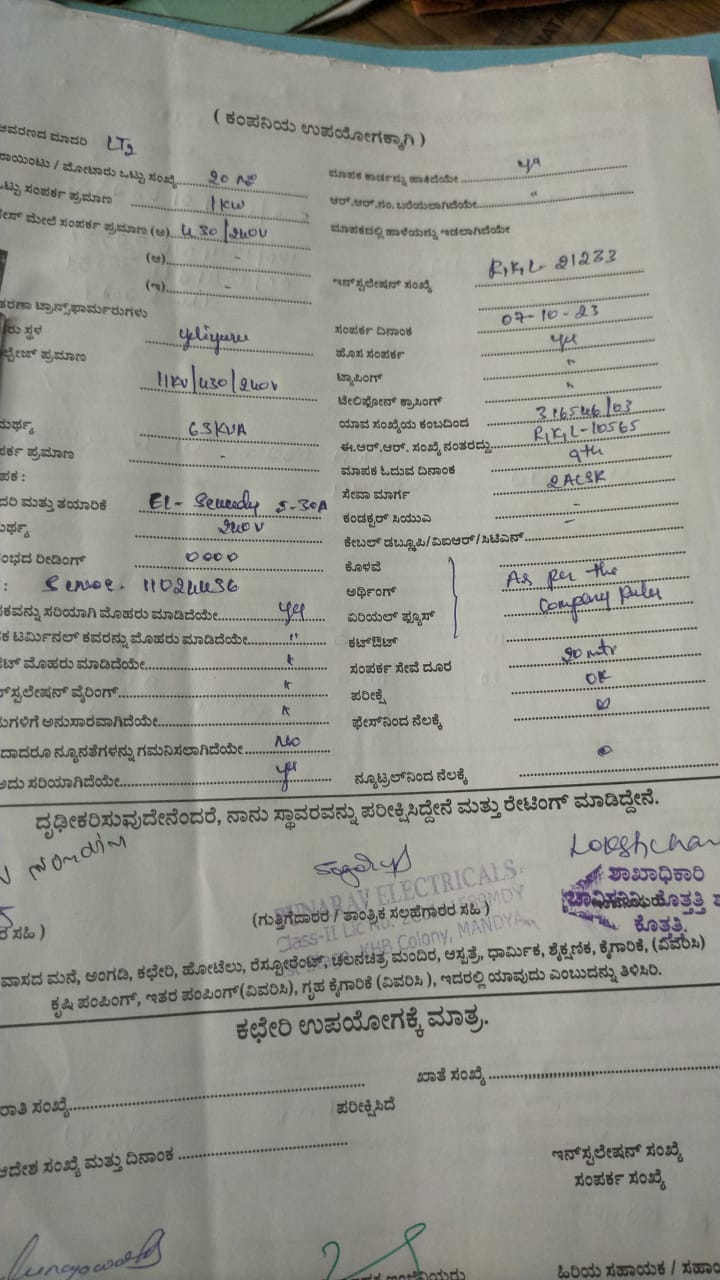 ( ಕಂಪನಿಯ ಉಪಯೋಗಕ್ಕಾಗಿ )
ಆವರಣದ ಮಾದರಿ LT2
ರಾಯಿಂಟು / ಮೋಟಾರು ಒಟ್ಟು ಸಂಖ್ಯೆ 20
ಒಟ್ಟು ಸಂಪರ್ಕ ಪ್ರಮಾಣ 1KW
ಮೇಲೆ ಸಂಪರ್ಕ ಪ್ರಮಾಣ (ಅ) 430/240V
(ಆ) -
(ಇ) -
ತರಣಾ ಟ್ರಾನ್ಸ್‌ಫಾರ್ಮರುಗಳು
ರು ಸ್ಥಳ yeliyuru
ಲ್ಟೇಜ್ ಪ್ರಮಾಣ
11KV/430/240V
ಮರ್ಥ್ಯ 63KVA
ಪರ್ಕ ಪ್ರಮಾಣ -
ಪಕ :
ದರಿ ಮತ್ತು ತಯಾರಿಕೆ 5-30A
ಮರ್ಥ್ಯ 240V
ಂಭದ ರೀಡಿಂಗ್ 0000
: 11024436
ಕವನ್ನು ಸರಿಯಾಗಿ ಮೊಹರು ಮಾಡಿದೆಯೇ yes
ಕ ಟರ್ಮಿನಲ್ ಕವರನ್ನು ಮೊಹರು ಮಾಡಿದೆಯೇ "
ಟ್ ಮೊಹರು ಮಾಡಿದೆಯೇ
ನ್‌ಸ್ಪಲೇಷನ್ ವೈರಿಂಗ್
ಮಗಳಿಗೆ ಅನುಸಾರವಾಗಿದೆಯೇ
ದಾದರೂ ನ್ಯೂನತೆಗಳನ್ನು ಗಮನಿಸಲಾಗಿದೆಯೇ No
ಅದು ಸರಿಯಾಗಿದೆಯೇ yes
ಮಾಪಕ ಕಾರ್ಡನ್ನು ಹಾಕಿದೆಯೇ yes
ಆರ್.ಆರ್.ನಂ. ಬರೆಯಲಾಗಿದೆಯೇ "
ಮಾಪಕದಲ್ಲಿ ಹಾಳೆಯನ್ನು ಇಡಲಾಗಿದೆಯೇ
ಇನ್‌ಸ್ಪಲೇಷನ್ ಸಂಖ್ಯೆ R,K,L-21233
ಸಂಪರ್ಕ ದಿನಾಂಕ 07-10-23
ಹೊಸ ಸಂಪರ್ಕ yes
ಟ್ಯಾಪಿಂಗ್ "
ಟೇಲಿಫೋನ್ ಕ್ರಾಸಿಂಗ್ "
ಯಾವ ಸಂಖ್ಯೆಯ ಕಂಬದಿಂದ 316546/03
ಈ.ಆರ್.ಆರ್. ಸಂಖ್ಯೆ ನಂತರದ್ದು R,K,L-10565
ಮಾಪಕ ಓದುವ ದಿನಾಂಕ 9th
ಸೇವಾ ಮಾರ್ಗ 2ACSR
ಕಂಡಕ್ಟರ್ ಸಿಯುಎ -
ಕೇಬಲ್ ಡಬ್ಲ್ಯೂಪಿ/ವಿಐಆರ್/ಸಿಟಿಎನ್ -
ಕೊಳವೆ
ಅರ್ಥಿಂಗ್ As per the
ಏರಿಯಲ್ ಫ್ಯೂಸ್ Company Rules
ಕಟ್‌ಔಟ್
ಸಂಪರ್ಕ ಸೇವೆ ದೂರ 20 mtr
ಪರೀಕ್ಷೆ OK
ಫೇಸ್‌ನಿಂದ ನೆಲಕ್ಕೆ
ನ್ಯೂಟ್ರಲ್‌ನಿಂದ ನೆಲಕ್ಕೆ
ದೃಢೀಕರಿಸುವುದೇನೆಂದರೆ, ನಾನು ಸ್ಥಾವರವನ್ನು ಪರೀಕ್ಷಿಸಿದ್ದೇನೆ ಮತ್ತು ರೇಟಿಂಗ್ ಮಾಡಿದ್ದೇನೆ.
ರ ಸಹಿ )
(ಗುತ್ತಿಗೆದಾರರ / ತಾಂತ್ರಿಕ ಸಲಹೆಗಾರರ ಸಹಿ )
ELECTRICALS
Class-II Lic No.
KHB Colony, MANDYA
ಶಾಖಾಧಿಕಾರಿ
ಕೊತ್ತತ್ತಿ
ಕೊತ್ತತ್ತಿ.
ವಾಸದ ಮನೆ, ಅಂಗಡಿ, ಕಛೇರಿ, ಹೋಟೆಲು, ರೆಸ್ಟೋರೆಂಟ್, ಚಲನಚಿತ್ರ ಮಂದಿರ, ಆಸ್ಪತ್ರೆ, ಧಾರ್ಮಿಕ, ಶೈಕ್ಷಣಿಕ, ಕೈಗಾರಿಕೆ, (ವಿವರಿಸಿ)
ಕೃಷಿ ಪಂಪಿಂಗ್, ಇತರ ಪಂಪಿಂಗ್(ವಿವರಿಸಿ), ಗೃಹ ಕೈಗಾರಿಕೆ (ವಿವರಿಸಿ ), ಇದರಲ್ಲಿ ಯಾವುದು ಎಂಬುದನ್ನು ತಿಳಿಸಿರಿ.
ಕಛೇರಿ ಉಪಯೋಗಕ್ಕೆ ಮಾತ್ರ.
ಖಾತೆ ಸಂಖ್ಯೆ
ರಾತಿ ಸಂಖ್ಯೆ
ಪರೀಕ್ಷಿಸಿದೆ
ಆದೇಶ ಸಂಖ್ಯೆ ಮತ್ತು ದಿನಾಂಕ
ಇನ್‌ಸ್ಪಲೇಷನ್ ಸಂಖ್ಯೆ
ಸಂಪರ್ಕ ಸಂಖ್ಯೆ
ಹಿರಿಯ ಸಹಾಯಕ / ಸಹಾ